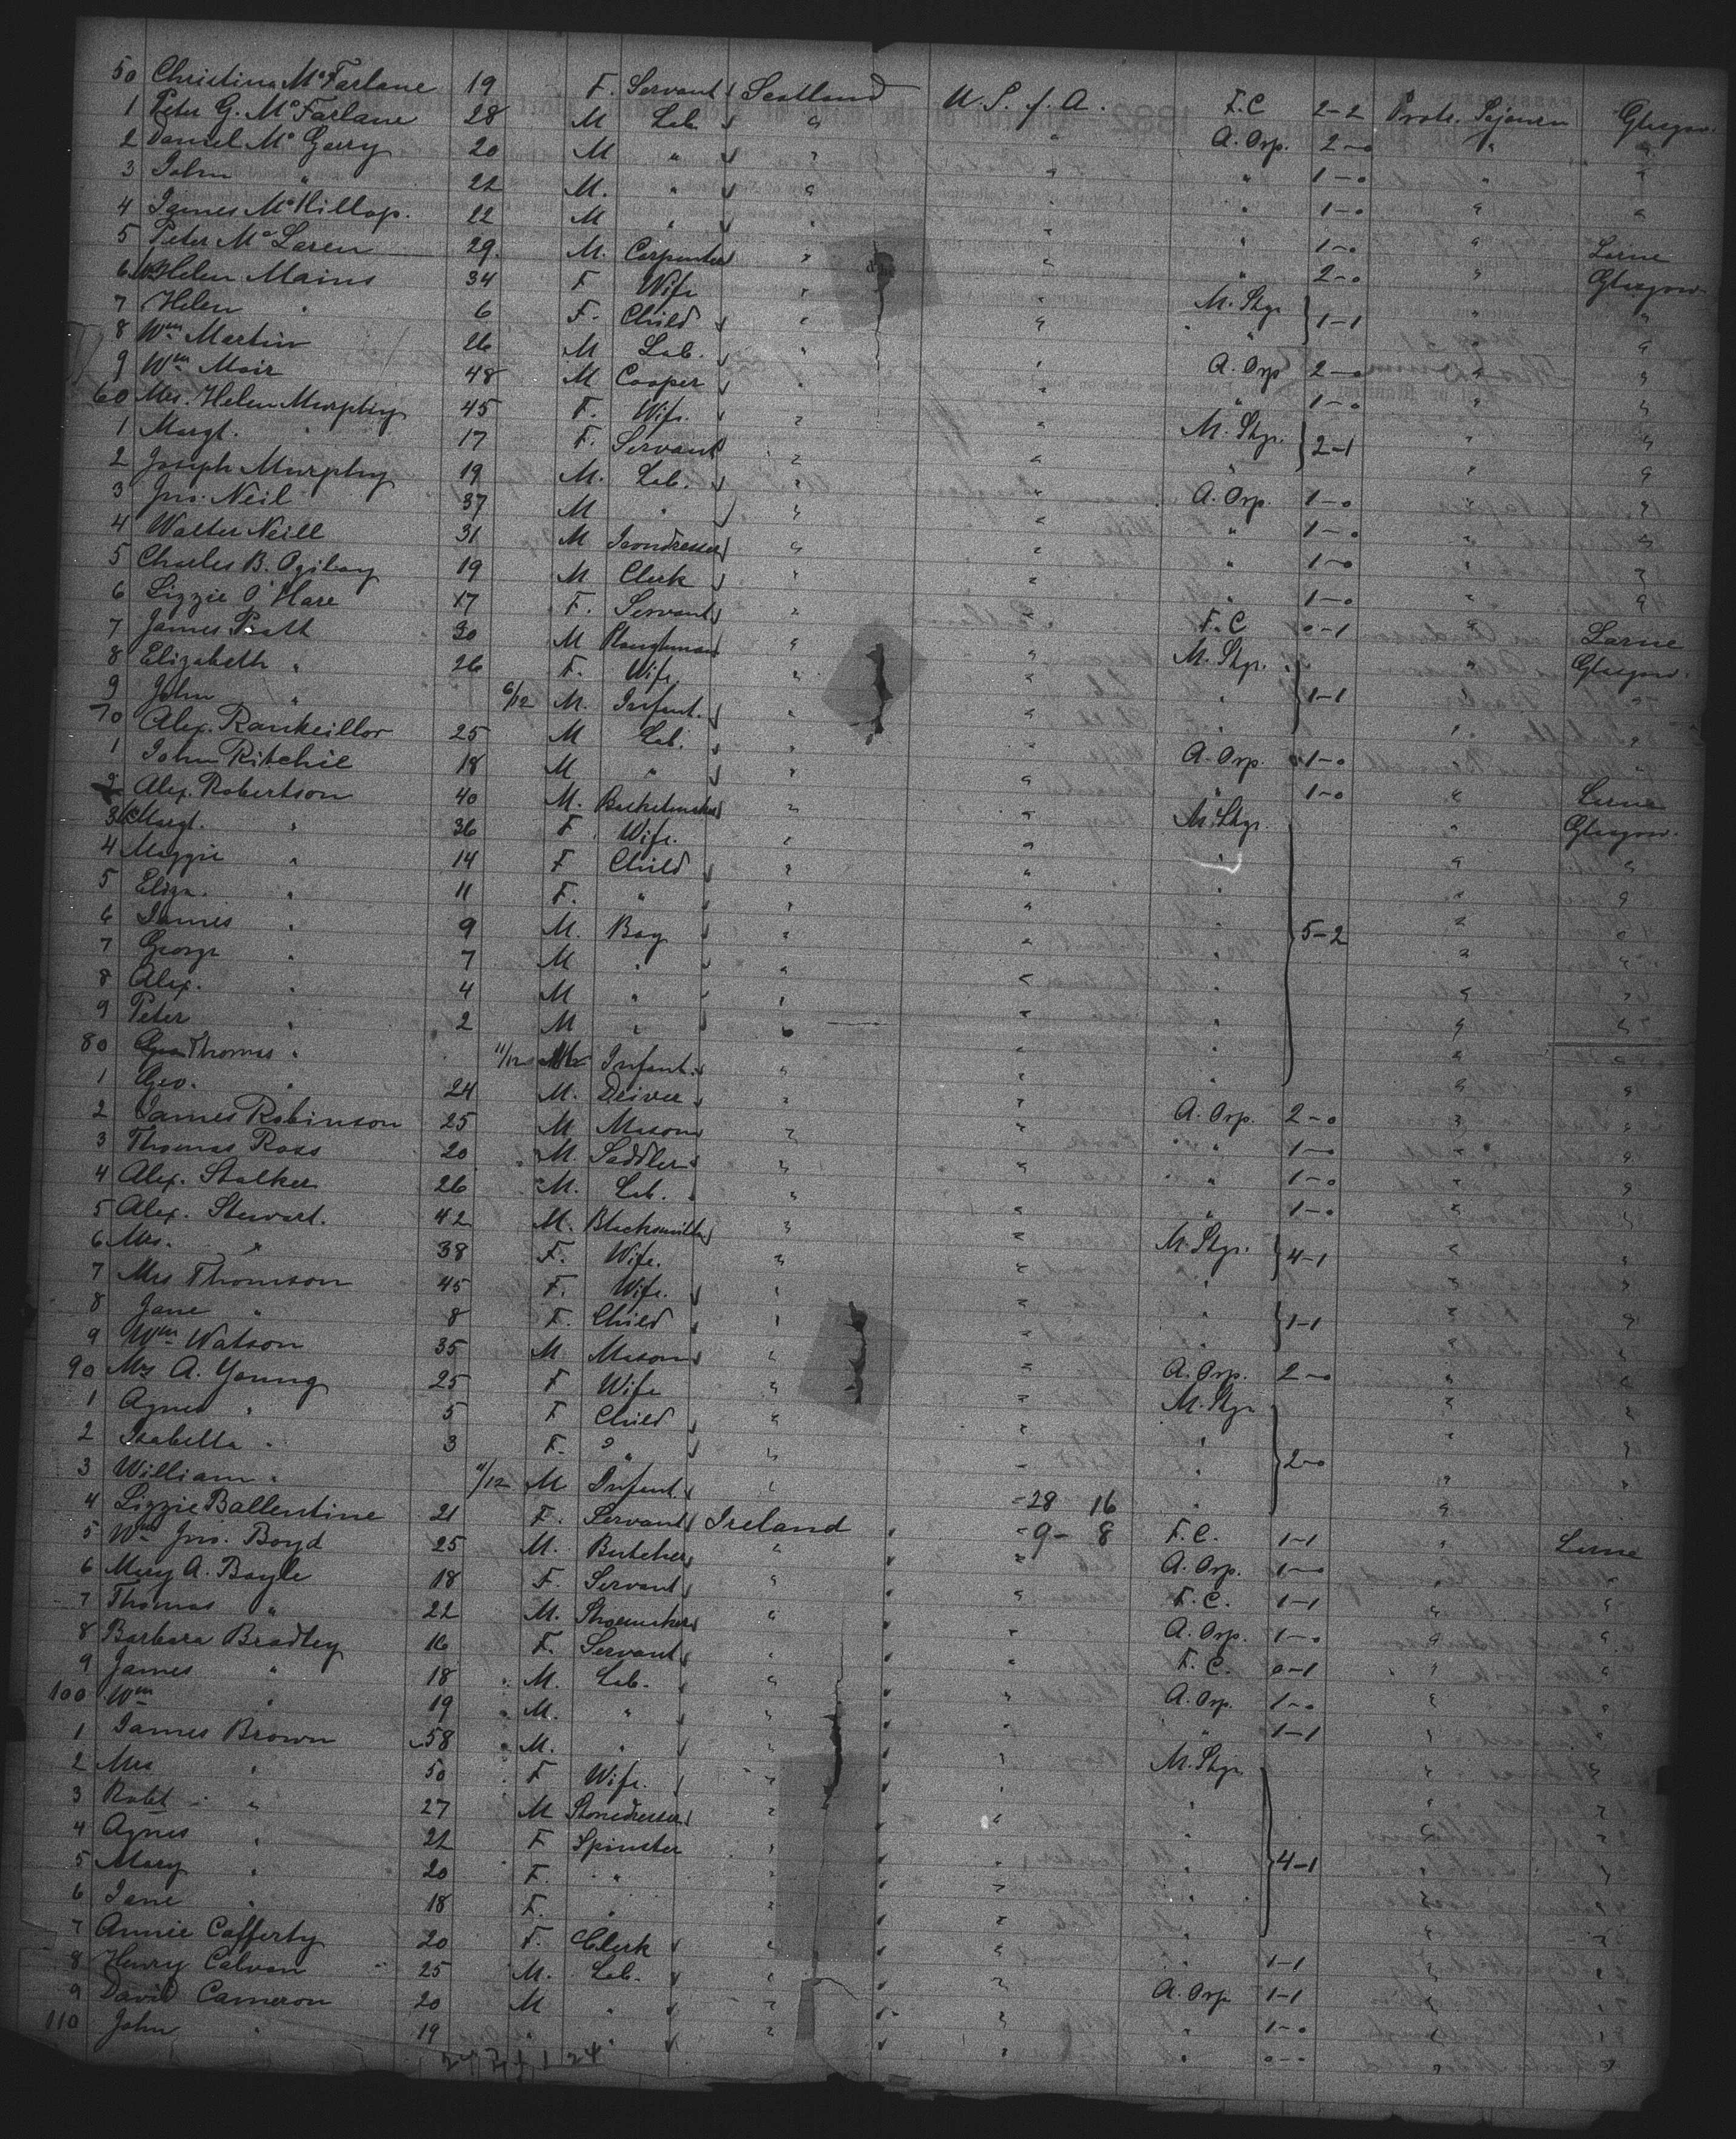 50 Christina McFarlane 19 F. Servant Scotland U.S. of A. F.C 2-2 Protr. Sojourn Glasgow.
1 Peter G. McFarlane 28 M Lab. " " A. Orp. 2-0 " "
2 Daniel McGarry 20 M " " " " 1-0 " "
3 John " 22 M. " " " " 1-0 " "
4 James McKillop. 22 M " " " " 1-0 " Larne
5 Peter McLaren 29. M. Carpenter " " " 2-0 " Glasgow
6 Mrs Helen Mains 34 F Wife " " M. Stgr. 1-1 " "
7 Helen " 6 F. Child " " " " "
8 Wm Martin 26 M Lab. " " A. Orp 2-0 " "
9 Wm Moir 48 M Cooper " " " 1-0 " "
60 Mrs. Helen Murphy 45 F. Wife. " " M. Stgr. 2-1 " "
1 Margt. " 17 F. Servant " " " " "
2 Joseph Murphy 19 M. Lab. " " A. Orp. 1-0 " "
3 Jno. Neil 37 M " " " " 1-0 " "
4 Walter Neill 31 M Irondresser " " " 1-0 " "
5 Charles B. Ogilvy 19 M Clerk " " " 1-0 " "
6 Lizzie O'Hare 17 F. Servant " " F.C 0-1 " Larne
7 James Pratt 30 M Ploughman " " M. Stgr. 1-1 " Glasgow.
8 Elizabeth " 26 F. Wife. " " " " "
9 John " 6/12 M. Infant. " " " " "
70 Alex. Rankeillor 25 M Lab. " " A. Orp. 1-0 " "
1 John Ritchie 18 M " " " " 1-0 " Larne
2 Alex. Robertson 40 M. Basketmaker " " M. Stgr. 5-2 " Glasgow.
3 Mrs Margt. " 36 F. Wife. " " " " "
4 Maggie " 14 F Child " " " " "
5 Eliza. " 11 F. " " " " " "
6 James " 9 M. Boy " " " " "
7 George " 7 M " " " " " "
8 Alex. " 4 M " " " " " "
9 Peter " 2 M " " " " " "
80 Thomas " 11/12 M Infant. " " " " "
1 Geo. " 24 M. Driver " " A. Orp. 2-0 " "
2 James Robinson 25 M Mason " " " 1-0 " "
3 Thomas Ross 20 M. Saddler " " " 1-0 " "
4 Alex. Stalker 26 M. Lab. " " " 1-0 " "
5 Alex. Stewart. 42 M. Blacksmith " " M. Stgr. 4-1 " "
6 Mrs. " 38 F. Wife. " " " " "
7 Mrs Thomson 45 F. Wife. " " " 1-1 " "
8 Jane " 8 F. Child " " " " "
9 Wm Watson 35 M Mason " " A. Orp. 2-0 " "
90 Mrs A. Young 25 F Wife " " M. Stgr 2-0 " "
1 Agnes " 5 F Child " " " " "
2 Isabella " 3 F. " " " " " "
3 William " 11/12 M Infant. " -28 16 " " "
4 Lizzie Ballentine 21 F. Servant Ireland -9- 8 F.C. 1-1 " Larne
5 Wm Jno. Boyd 25 M. Butcher " " A. Orp. 1-0 " "
6 Mary A. Boyle 18 F. Servant " " F.C. 1-1 " "
7 Thomas " 22 M. Shoemaker " " A. Orp. 1-0 " "
8 Barbara Bradley 16 F. Servant " " F.C. 0-1 " "
9 James " 18 M. Lab. " " A. Orp. 1-0 " "
100 Wm " 19 M. " " " " 1-1 " "
1 James Brown 58 M. " " " M. Stgr. 4-1 " "
2 Mrs " 50 F Wife. " " " " "
3 Robt " 27 M Stonedresser " " " " "
4 Agnes " 22 F Spinster " " " " "
5 Mary " 20 F. " " " " " "
6 Jane " 18 F. " " " " " "
7 Annie Cafferty 20 F. Clerk " " " 1-1 " "
8 Henry Calvan 25 M. Lab. " " A. Orp 1-1 " "
9 David Cameron 20 M " " " " 1-0 " "
110 John " 19 " " " " " 0-- " "